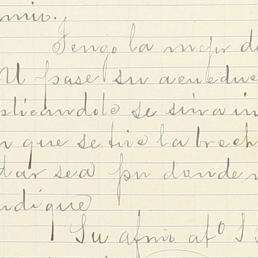 mio.
Tengo la mejor d
U pase su acuedu
plicandole se sirva in
n que se tire la brech
tar sea por donde
ndique
Su afmo afº S